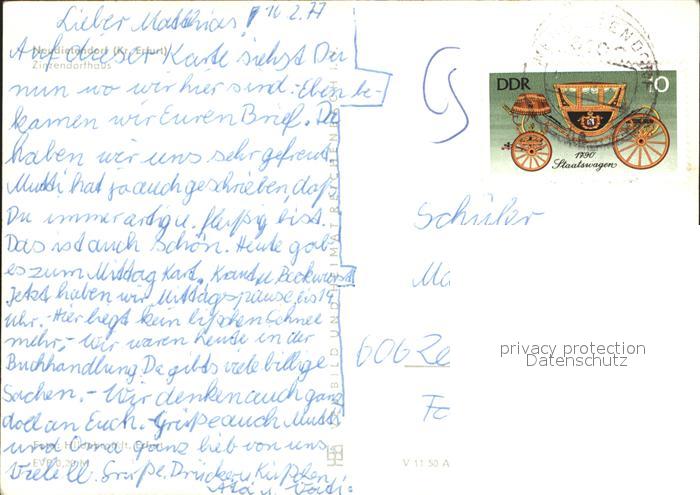 Lieber Matthias! 16.2.77
Auf dieser Karte siehst Du
nun wo wir hier sind. Eben be-
kamen wir Euren Brief. Da
haben wir uns sehr gefreut
Mutti hat ja auch geschrieben, daß
Du immer artig u. fleißig bist.
Das ist auch schön. Heute gab
es zum Mittag Kart., Kraut u. Bockwurst
Jetzt haben wir Mittagspause bis 14
Uhr. - Hier liegt kein bißchen Schnee
mehr. - Wir waren heute in der
Buchhandlung Da gibts viele billige
Sachen. - Wir denken auch ganz
doll an Euch. - Grüße auch Mutti
und Oma ganz lieb von uns
Viele ll. Grüße. Drücker u. Küßchen
Neudietendorf (Kr. Erfurt)
Zinzendorfhaus
EVP 0,20 M
BILD UND HEIMAT REICHENBACH
V 11 50 A
DDR
10
1790
Staatswagen
Schüler
Ma
606 Ze
privacy protection
Datenschutz